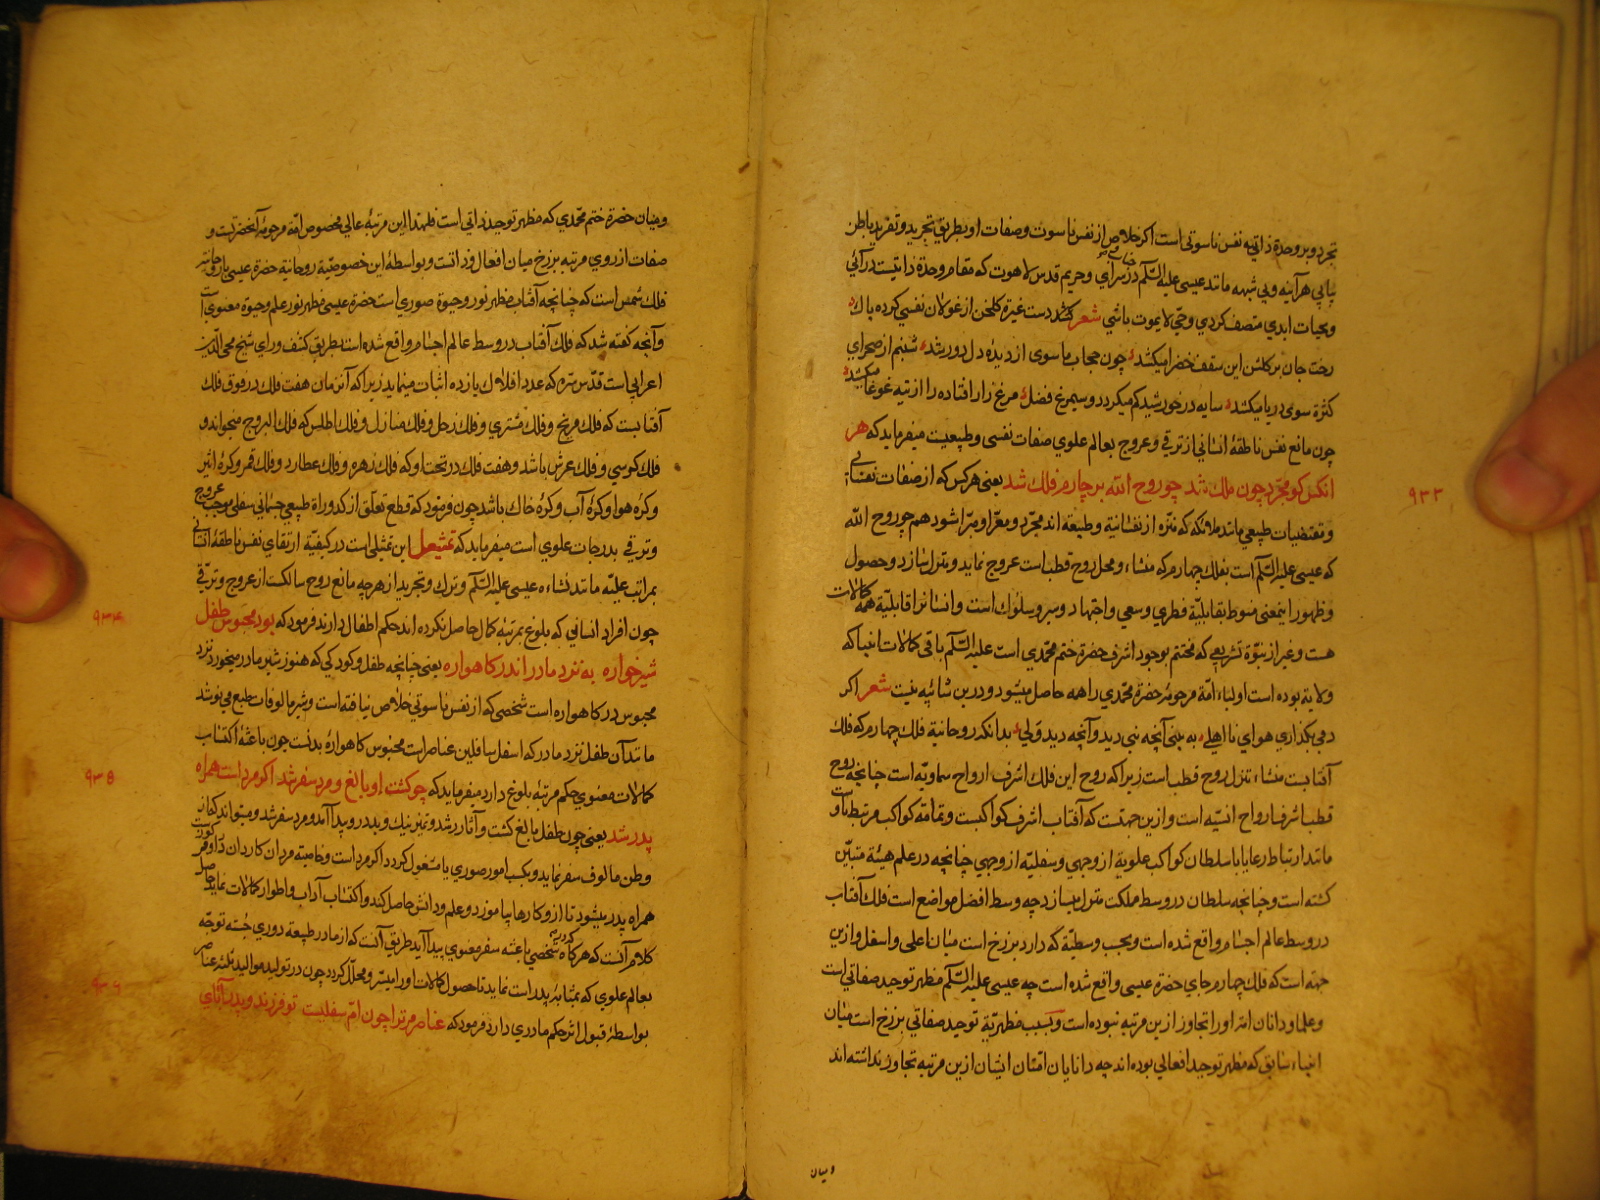 تجرد و بر وحدة ذاتیه نفس ناسوتی است اکر خلاص از نفس ناسوت و صفات او بطریق تجرید و تفرید باطن
یابی هر آینه وبی شبهه مانند عیسی علیه السّلم در سرای و حریم قدس لاهوت که مقام وحدة ذاتیت درآئی
و بحیات ابدی متصف کردی و حی لا یموت باشی شعر کشد دست غیرة کلخن از غولان نفسی کرده پاک
رخت جان بر کلشن این سقف خضرا میکشد چون حجاب ما سوی از دیدۀ دل دور شد شبنم از صحرای
کثرة سوی دریا میکشد سایه در خورشید کم میکردد و سیمرغ فضل مرغ زار افتاده را از تیه غوغا میکشد
چون مانع نفس ناطقۀ انسانی از ترقی و عروج بعالم علوی صفات نفسی و طبیعیت میفرماید که هر
انکس کو مجرد چون ملک شد چو روح الله بر چارم فلک شد یعنی هر کس که از صفات نفسانی
و مقتضیات طبیعی مانند ملائکه که منزّه از نفسانیة و طبیعة اند مجرّد و معرّا و مبرّا شود همچو روح الله
که عیسی علیه السّلم است بفلک چهارم که منشاء و محل روح قطب است عروج نماید و منزل سازد و حصول
و ظهور اینمعنی منوط بقابلیّة فطری و سعی و اجتهاد و سیر و سلوک است و انسانرا قابلیّة همه کمالات
هست و غیر از نبوّة تشریعی که مختتم بوجود اشرف حضرة ختم محمدی است علیه السّلم باقی کمالات انبیا که
ولایة بوده است اولیاء امّة مرحومۀ حضرة محمّدی را همه حاصل میشود و درین شائبه نیست شعر اکر
دمی بکذاری هوای نا اهلی به بینی آنچه نبی دید و آنچه دید ولی بدانکه روحانیة فلک چهارم که فلک
آفتابست منشاء تنزل روح قطب است زیرا که روح این فلک اشرف ارواح سماویّه است چنانچه روح
قطب اشرف ارواح انسیّه است و ازین جهتست که آفتاب اشرف کواکبست و تمامۀ کواکب مرتبط باوست
مانند ارتباط رعایا با سلطان کواکب علویة از وجهی و سفلیّه از وجهی چنانچه در علم هیئة متبیّن
کشته است و چنانچه سلطان در وسط مملکت منزل میسازد چه وسط افضل مواضع است فلک آفتاب
در وسط عالم اجسام واقع شده است و بحسب وسطیّة که دارد برزخ است میان اعلی و اسفل و ازین
جهة است که فلک چهارم جای حضرة عیسی واقع شده است چه عیسی علیه السّلم مظهر توحید صفاتی است
و علما و دانان امّة او را تجاوز ازین مرتبه نبوده است و بسبب مظهریّة توحید صفاتی برزخ است میان
انبیاء سابق که مظهر توحید افعالی بوده اند چه دانایان امّتان ایشان ازین مرتبه تجاوز نداشته اند
و میان
۹۳۳
و میان حضرة ختم محمّدی که مظهر توحید ذاتی است فلهذا این مرتبۀ عالی مخصوص امّة مرحومۀ آنحضرتست و
صفات از روی مرتبه برزخ میان افعال و ذاتست و بواسطۀ این خصوصیّة روحانیة حضرة عیسی با روحانیة
فلک شمس است که چنانچه آفتاب مظهر نور و حیوة صوری است حضرة عیسی مظهر نور علم و حیوة معنوی است
و آنچه کفته شد که فلک آفتاب در وسط عالم اجسام واقع شده است بطریق کشف و رای شیخ محی الدین
اعرابی است قدّس سرّه که عدد افلاک یازده اثبات مینماید زیرا که آنزمان هفت فلک در فوق فلک
آفتابست که فلک مریخ و فلک مشتری و فلک زحل و فلک منازل و فلک اطلس که فلک البروج میخواند و
فلک کرسی و فلک عرش باشد و هفت فلک در تحت او که فلک زهره و فلک عطارد و فلک قمر و کرۀ اثیر
و کرۀ هوا و کرۀ آب و کرۀ خاک باشد چون فرمود که قطع تعلّق از کدوراة طبیعی جسمانی سفلی موجب عروج
و ترقی بدرجات علوی است میفرماید که تمثیل این تمثیلی است در کیفیّة ارتقای نفس ناطقۀ انسانی
بمراتب علیّه مانند نشاءه عیسی علیه السّلم و ترک و تجرید از هرچه مانع روح سالکست از عروج و ترقی
چون افراد انسانی که بلوغ بمرتبۀ کمال حاصل نکرده اند حکم اطفال دارند فرمود که بود محبوس طفل
شیرخواره به نزد مادر اندر کاهواره یعنی چنانچه طفل و کودکی که هنوز شیر مادر میخورد نزد
محبوس در کاهواره است شخصی که از نفس ناسوتی خلاص نیافته است و شیر مالوفات طبع می نوشد
مانند آن طفل نزد مادر که اسفل سافلین عناصر است محبوس کاهوارۀ بدنست چون باعثۀ اکتساب
کمالات معنوی حکم مرتبۀ بلوغ دارد میفرماید که چو کشت او بالغ و مرد سفر شد اکر مرد است همراه
پدر شد یعنی چون طفل بالغ کشت و آثار رشد و تمیز نیک و بد درو پیدا آمد و مرد سفر شد و میتواند که از
وطن مالوف سفر نماید و بکسب امور صوری یا مشغول کردد اکر مرد است و خاصیته مردان کاردان دارد
همراه پدر میشود تا ازو کارها بیاموزد و علم و دانش حاصل کند و اکتساب آداب و اطوار کمالات نماید
کلام آنست که هر کاه که در شخصی باعثه سفر معنوی پیدا آید طریق آنست که از مادر طبیعة دوری جسته توجّه
بعالم علوی که بمثابۀ پدر است نماید تا حصول کمالات او را میسّر و محصّل کردد چون در تولید موالید ثلثه عناصر
بواسطۀ قبول اثر حکم مادری دارد فرمود که عناصر مر ترا چون امّ سفلیست تو فرزند و پدر آبای
۹۳۴
۹۳۵
۹۳۶